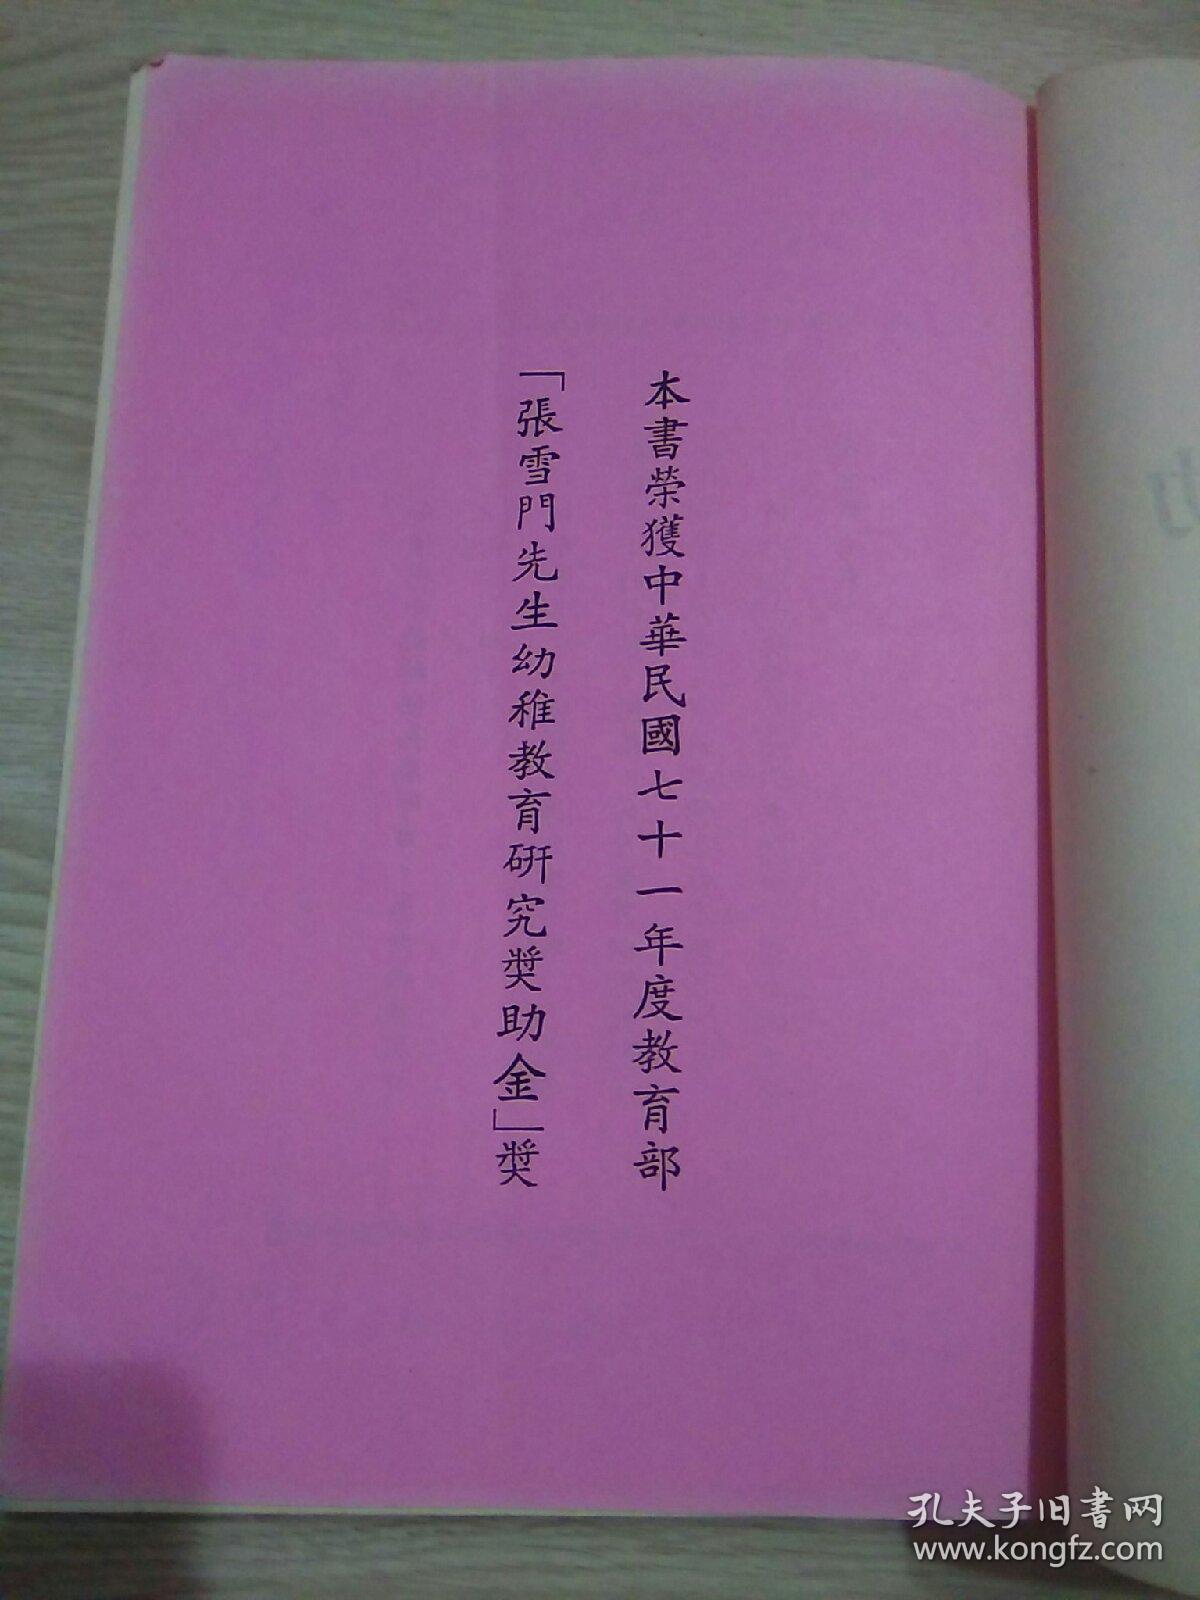 本書榮獲中華民國七十一年度教育部
「張雪門先生幼稚教育研究獎助金」獎
孔夫子旧书网
www.kongfz.com